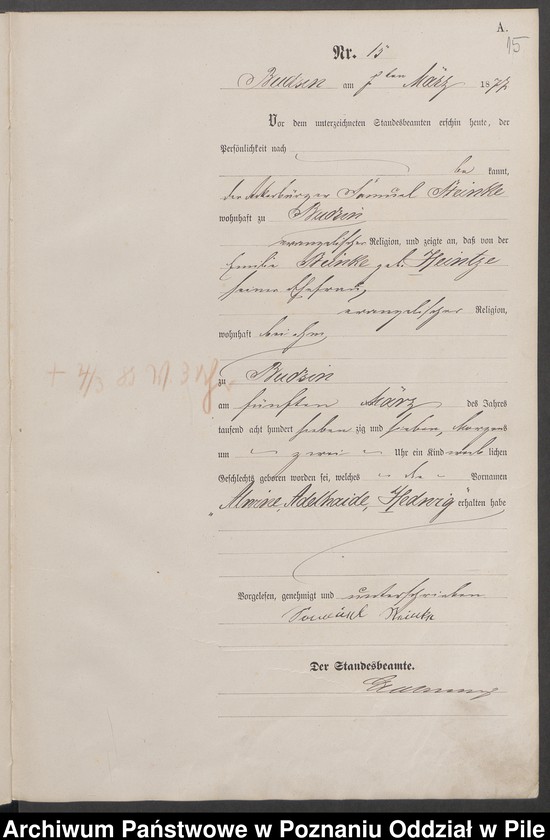 A.
15
Nr. 15
Budsin am ten März 1877
Vor dem unterzeichneten Standesbeamten erschien heute, der
Persönlichkeit nach
be kannt,
der Ackerbürger Samuel Steinke
wohnhaft zu Budzin
evangelischer Religion, und zeigte an, daß von der
Emilie Steinke geb. Heintze
seiner Ehefrau,
evangelischer Religion,
wohnhaft bei ihm,
zu Budzin
am fünften März des Jahres
tausend acht hundert sieben zig und sieben, Morgens
um zwei Uhr ein Kind weib lichen
Geschlechts geboren worden sei, welches die Vornamen
„Alwine, Adelhaide, Hedwig“ erhalten habe
Vorgelesen, genehmigt und unterschrieben
Samuel Steinke
Der Standesbeamte.
Archiwum Państwowe w Poznaniu Oddział w Pile